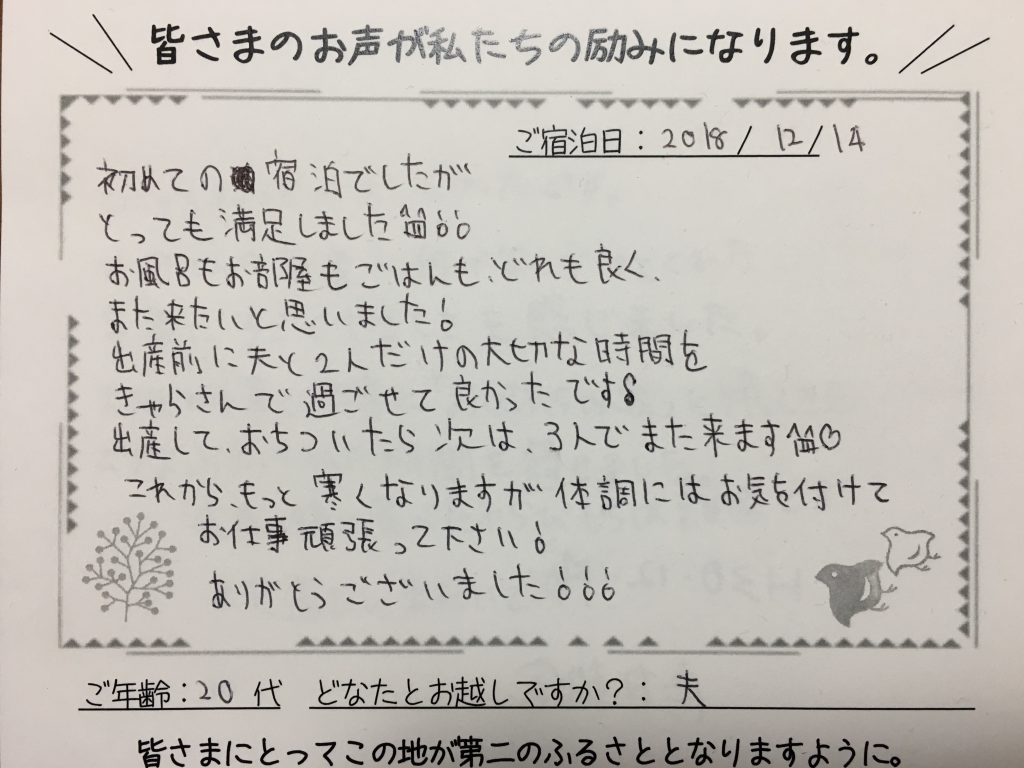 皆さまのお声が私たちの励みになります。
ご宿泊日：2018/12/14
初めての宿泊でしたが
とっても満足しました^^!!
お風呂もお部屋もごはんも、どれも良く、
また来たいと思いました!
出産前に夫と2人だけの大切な時間を
きゃらさんで過ごせて良かったです
出産して、おちついたら次は、3人でまた来ます^^♡
これから、もっと寒くなりますが体調にはお気を付けて
お仕事頑張って下さい!
ありがとうございました!!!
ご年齢：20代 どなたとお越しですか？：夫
皆さまにとってこの地が第二のふるさととなりますように。